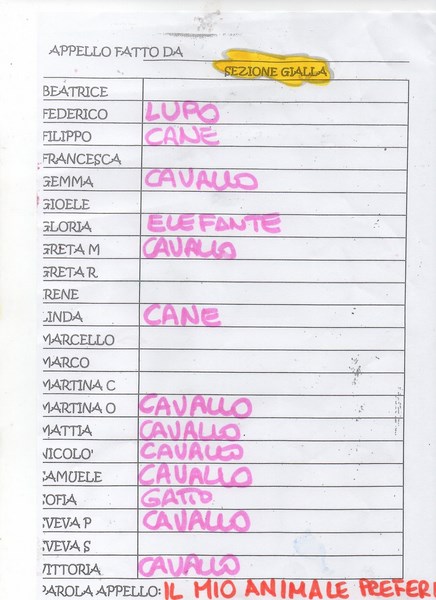 APPELLO FATTO DA
SEZIONE GIALLA
BEATRICE
FEDERICO LUPO
FILIPPO CANE
FRANCESCA
GEMMA CAVALLO
GIOELE
GLORIA ELEFANTE
GRETA M CAVALLO
GRETA R
IRENE
LINDA CANE
MARCELLO
MARCO
MARTINA C
MARTINA O CAVALLO
MATTIA CAVALLO
NICOLO' CAVALLO
SAMUELE CAVALLO
SOFIA GATTO
SVEVA P CAVALLO
SVEVA S
VITTORIA CAVALLO
PAROLA APPELLO: IL MIO ANIMALE PREFERI